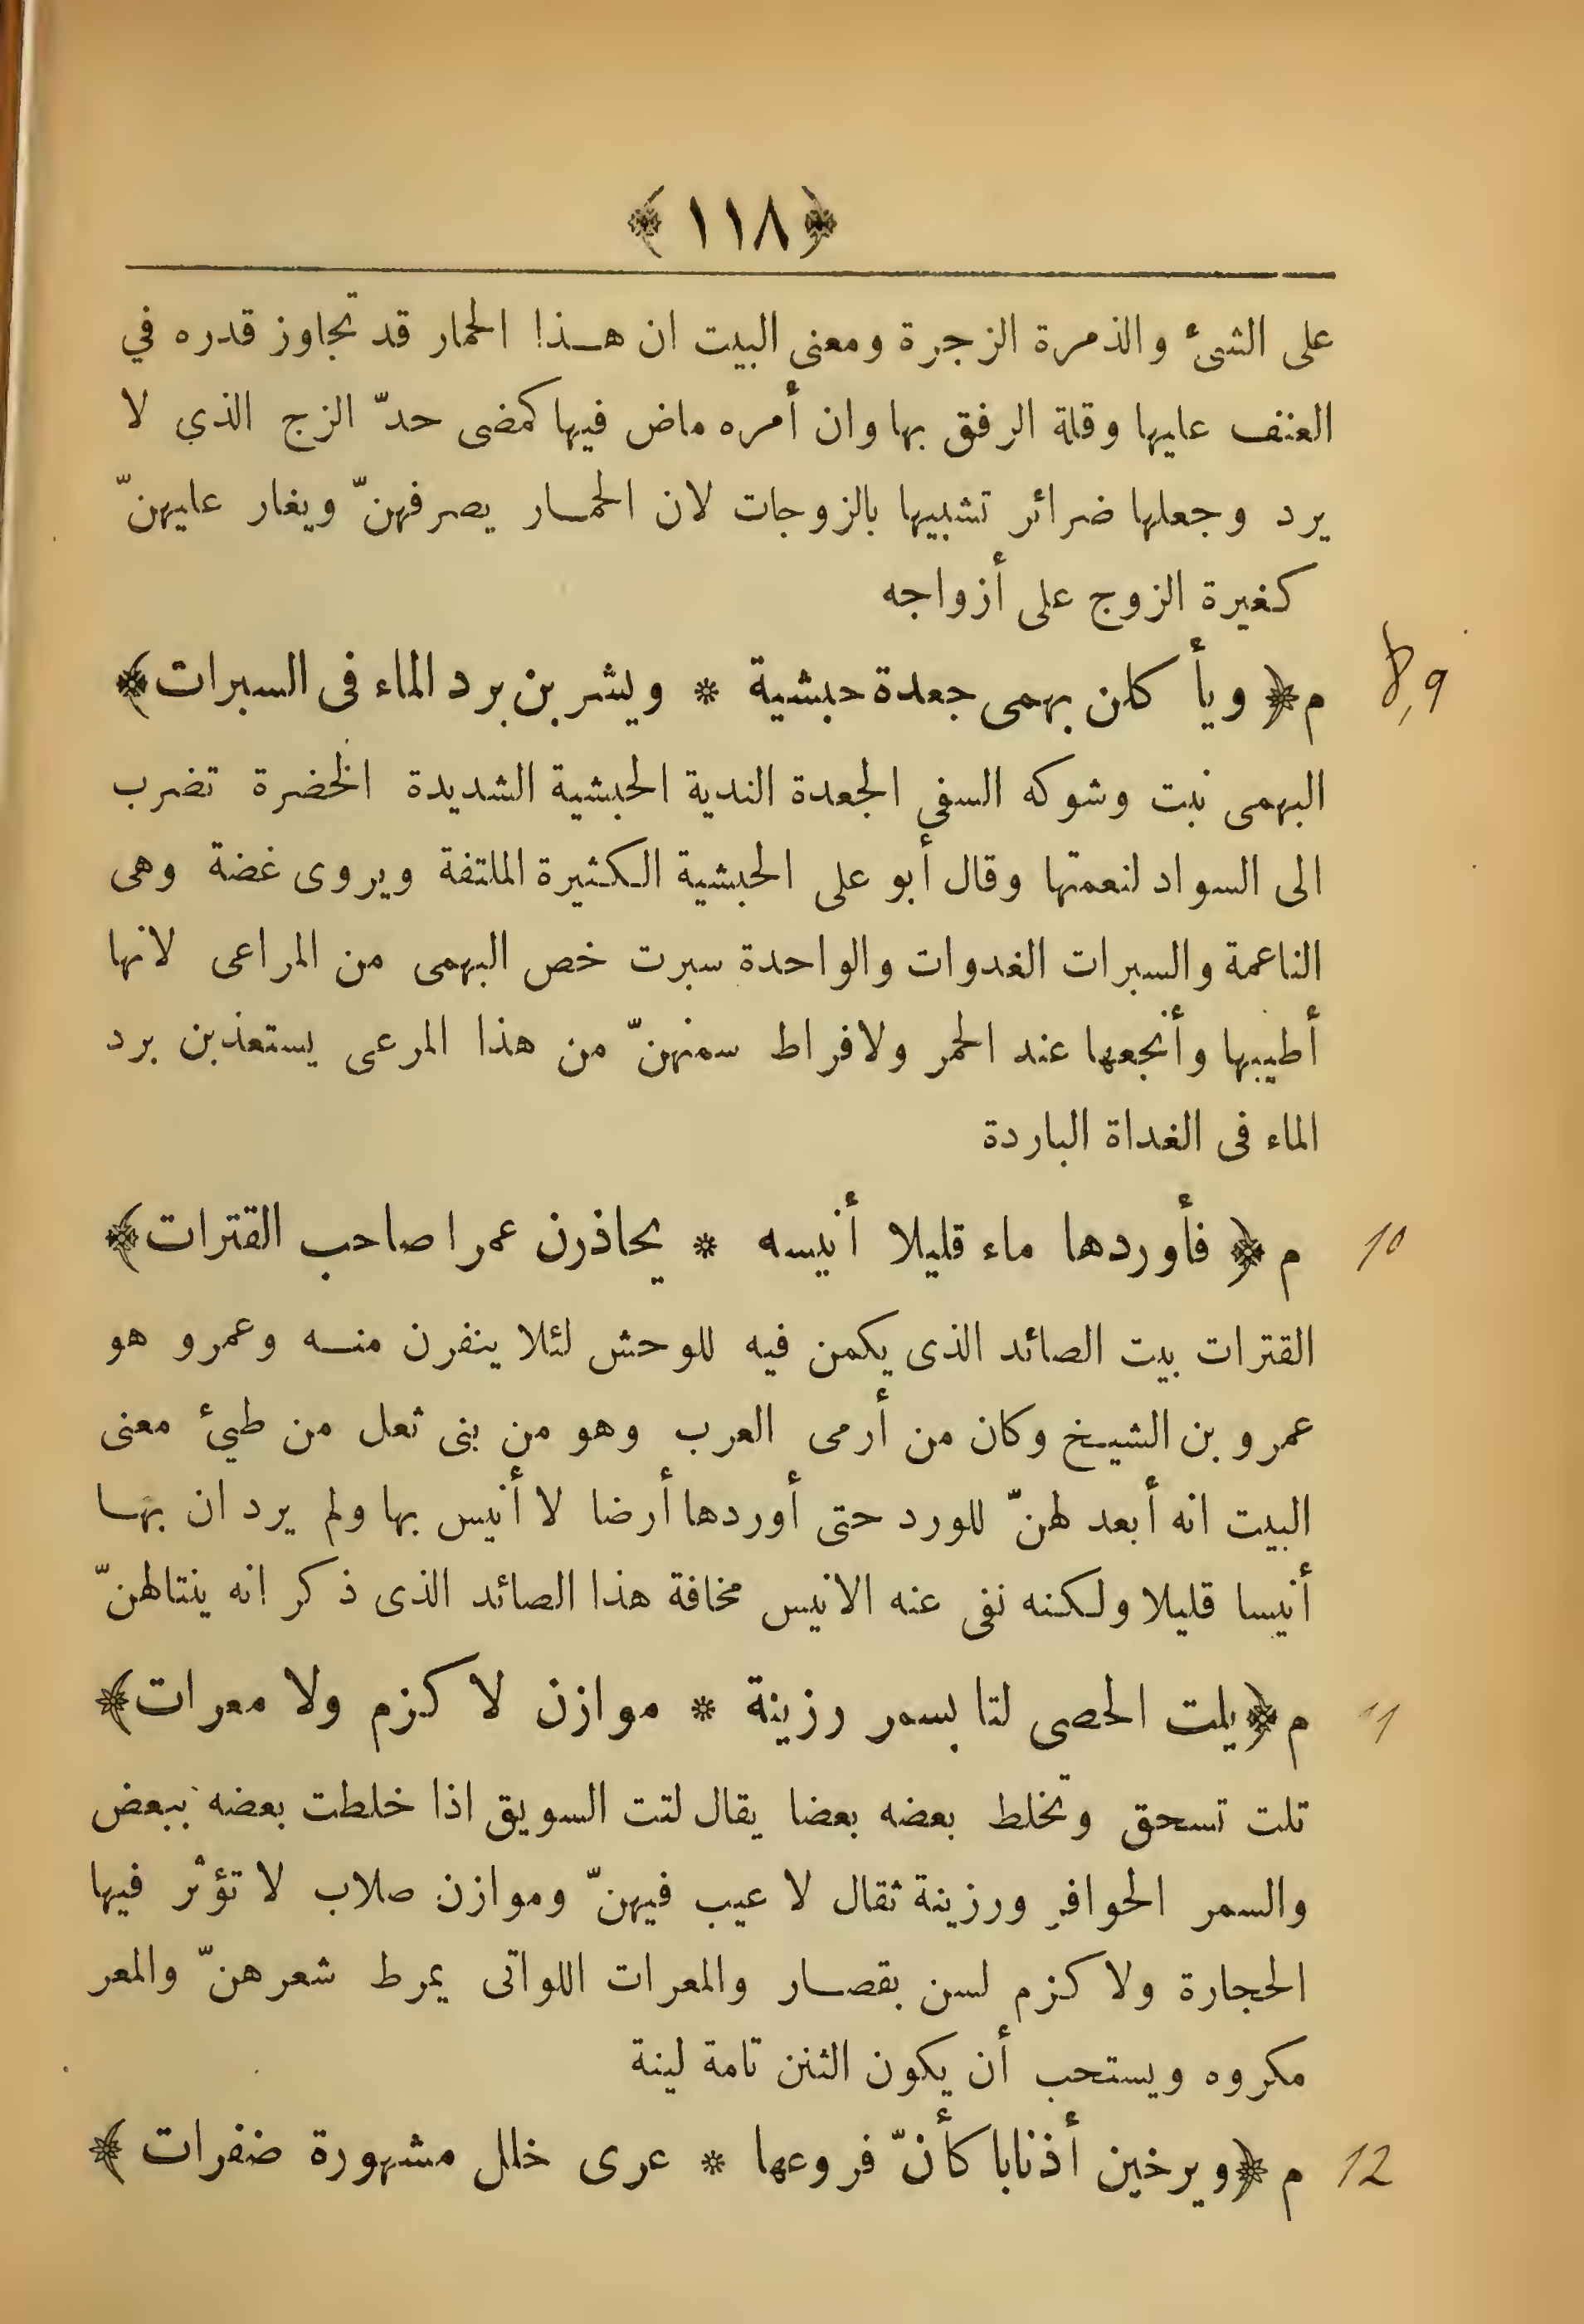 ﴿ ١١٨ ﴾
على الشئ والذمرة الزجرة ومعنى البيت ان هـذا الحمار قد تجاوز قدره في
العنف عليها وقلة الرفق بها وان أمره ماض فيها كمضى حدّ الزج الذي لا
يرد وجعلها ضرائر تشبيها بالزوجات لان الحمـار يصرفهنّ ويغار عليهنّ
كغيرة الزوج على أزواجه
م ﴿ ويأ كلن بهمى جعدة حبشية * ويشربن برد الماء فى السبرات ﴾ 8,9
البهمى نبت وشوكه السفى الجعدة الندية الحبشية الشديدة الخضرة تضرب
الى السواد لنعمتها وقال أبو على الحبشية الـكثيرة الملتفة ويروى غضة وهى
الناعمة والسبرات الغدوات والواحدة سبرت خص البهمى من المراعى لانها
أطيبها وأنجعها عند الحمر ولافراط سمنهنّ من هذا المرعى يستعذبن برد
الماء فى الغداة الباردة
م ﴿ فأوردها ماء قليلا أنيسه * يحاذرن عمرا صاحب القترات ﴾ 10
القترات بيت الصائد الذى يكمن فيه للوحش لئلا ينفرن منـه وعمرو هو
عمرو بن الشيـخ وكان من أرمى العرب وهو من بنى ثعل من طيئ معنى
البيت انه أبعد لهنّ للورد حتى أوردها أرضا لا أنيس بها ولم يرد ان بهـا
أنيسا قليلا ولـكنه نفى عنه الانيس مخافة هذا الصائد الذى ذكر انه ينتالهنّ
م ﴿ يلت الحصى لتا بسمر رزينة * موازن لا كزم ولا معرات ﴾ 11
تلت تسحق وتخلط بعضه بعضا يقال لتت السويق اذا خلطت بعضه ببعض
والسمر الحوافر ورزينة ثقال لا عيب فيهنّ وموازن صلاب لا تؤثر فيها
الحجارة ولا كزم لسن بقصـار والمعرات اللواتى يمرط شعرهنّ والمعر
مكروه ويستحب أن يكون الثنن تامة لينة
م ﴿ ويرخين أذنابا كأنّ فروعها * عرى خلل مشهورة ضفرات ﴾ 12